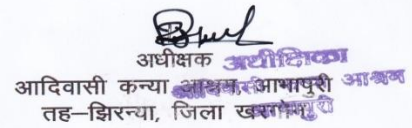 अधीक्षक अधीक्षिका
आदिवासी कन्या आश्रम, आभापुरी आश्रम
तह–झिरन्या, जिला खरगोन